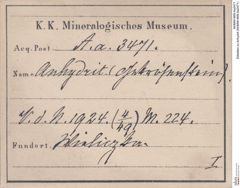 K. K. Mineralogisches Museum.
Acq. Post A. a. 3471.
Name: Anhydrit (Gekrösestein).
V. d. N. 1924. (4/49) M. 224.
Fundort: Wieliczka.
I